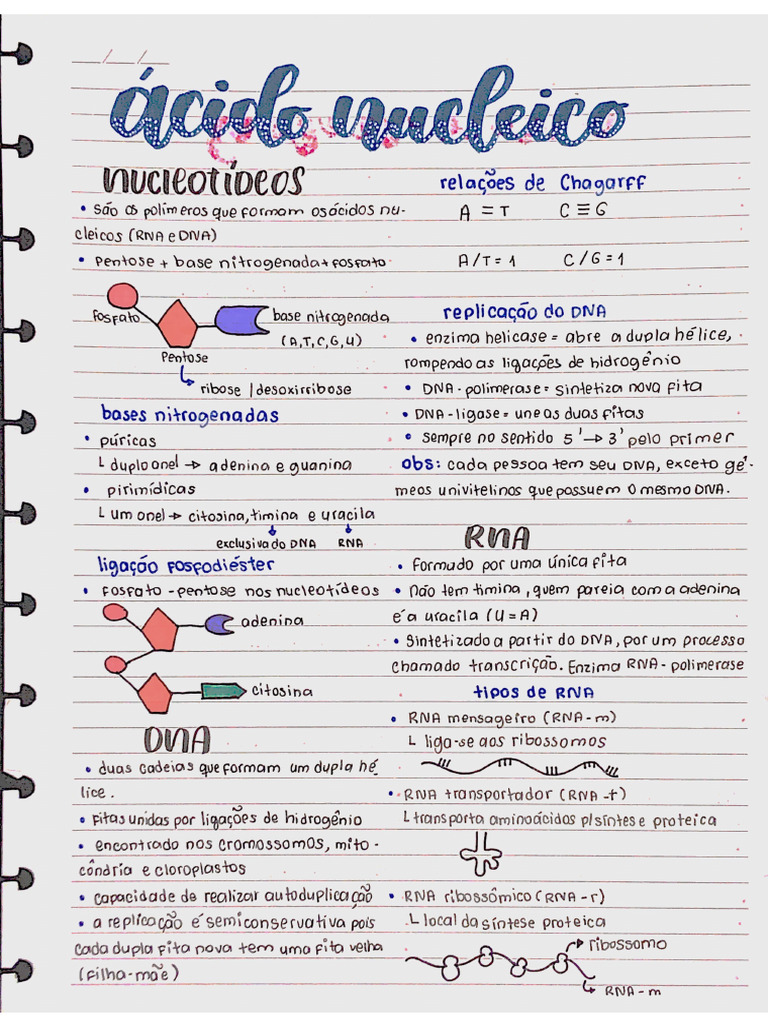 __/__/__
ácido nucleico
nucleotídeos
• são os polímeros que formam os ácidos nu-
cleicos (RNA e DNA)
• Pentose + base nitrogenada + fosfato
fosfato
base nitrogenada
(A,T,C,G,U)
Pentose
↳ ribose / desoxirribose
bases nitrogenadas
• púricas
└ duplo anel → adenina e guanina
• pirimídicas
└ um anel → citosina, timina e uracila
exclusiva do DNA RNA
ligação fosfodiéster
• fosfato - pentose nos nucleotídeos
adenina
citosina
DNA
• duas cadeias que formam um dupla hé-
lice.
• Fitas unidas por ligações de hidrogênio
• encontrado nos cromossomos, mito-
côndria e cloroplastos
• capacidade de realizar autoduplicação
• a replicação é semiconservativa pois
cada dupla fita nova tem uma fita velha
(filha-mãe)
relações de Chagarff
A = T C ≡ G
A/T = 1 C/G = 1
replicação do DNA
• enzima helicase = abre a dupla hélice,
rompendo as ligações de hidrogênio
• DNA-polimerase = sintetiza nova fita
• DNA-ligase = une as duas fitas
• sempre no sentido 5' → 3' pelo primer
obs: cada pessoa tem seu DNA, exceto gê-
meos univitelinos que possuem o mesmo DNA.
RNA
• Formado por uma única fita
• Não tem timina, quem pareia com a adenina
é a uracila (U=A)
• Sintetizado a partir do DNA, por um processo
chamado transcrição. Enzima RNA-polimerase
tipos de RNA
• RNA mensageiro (RNA-m)
└ liga-se aos ribossomos
• RNA transportador (RNA-t)
└ transporta aminoácidos p/síntese proteica
• RNA ribossômico (RNA-r)
└ local da síntese proteica
ribossomo
RNA-m